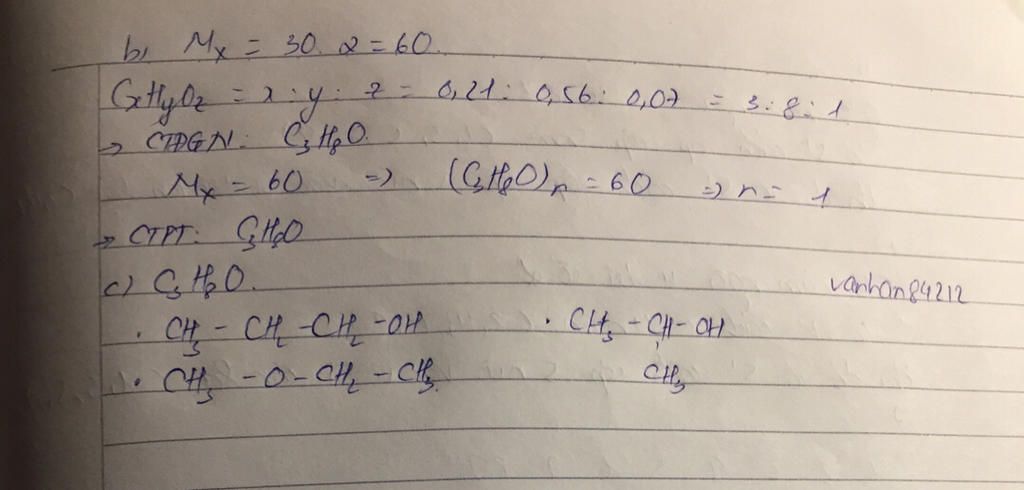 b, Mx = 30. 2 = 60.
CxHyOz = x : y : z = 0,21 : 0,56 : 0,07 = 3 : 8 : 1
→ CTĐGN: C3H8O.
Mx = 60 => (C3H8O)n = 60 => n = 1
→ CTPT: C3H8O
c) C3H8O.
vanhan84212
· CH3 - CH2 - CH2 - OH · CH3 - CH - OH
· CH3 - O - CH2 - CH3 CH3